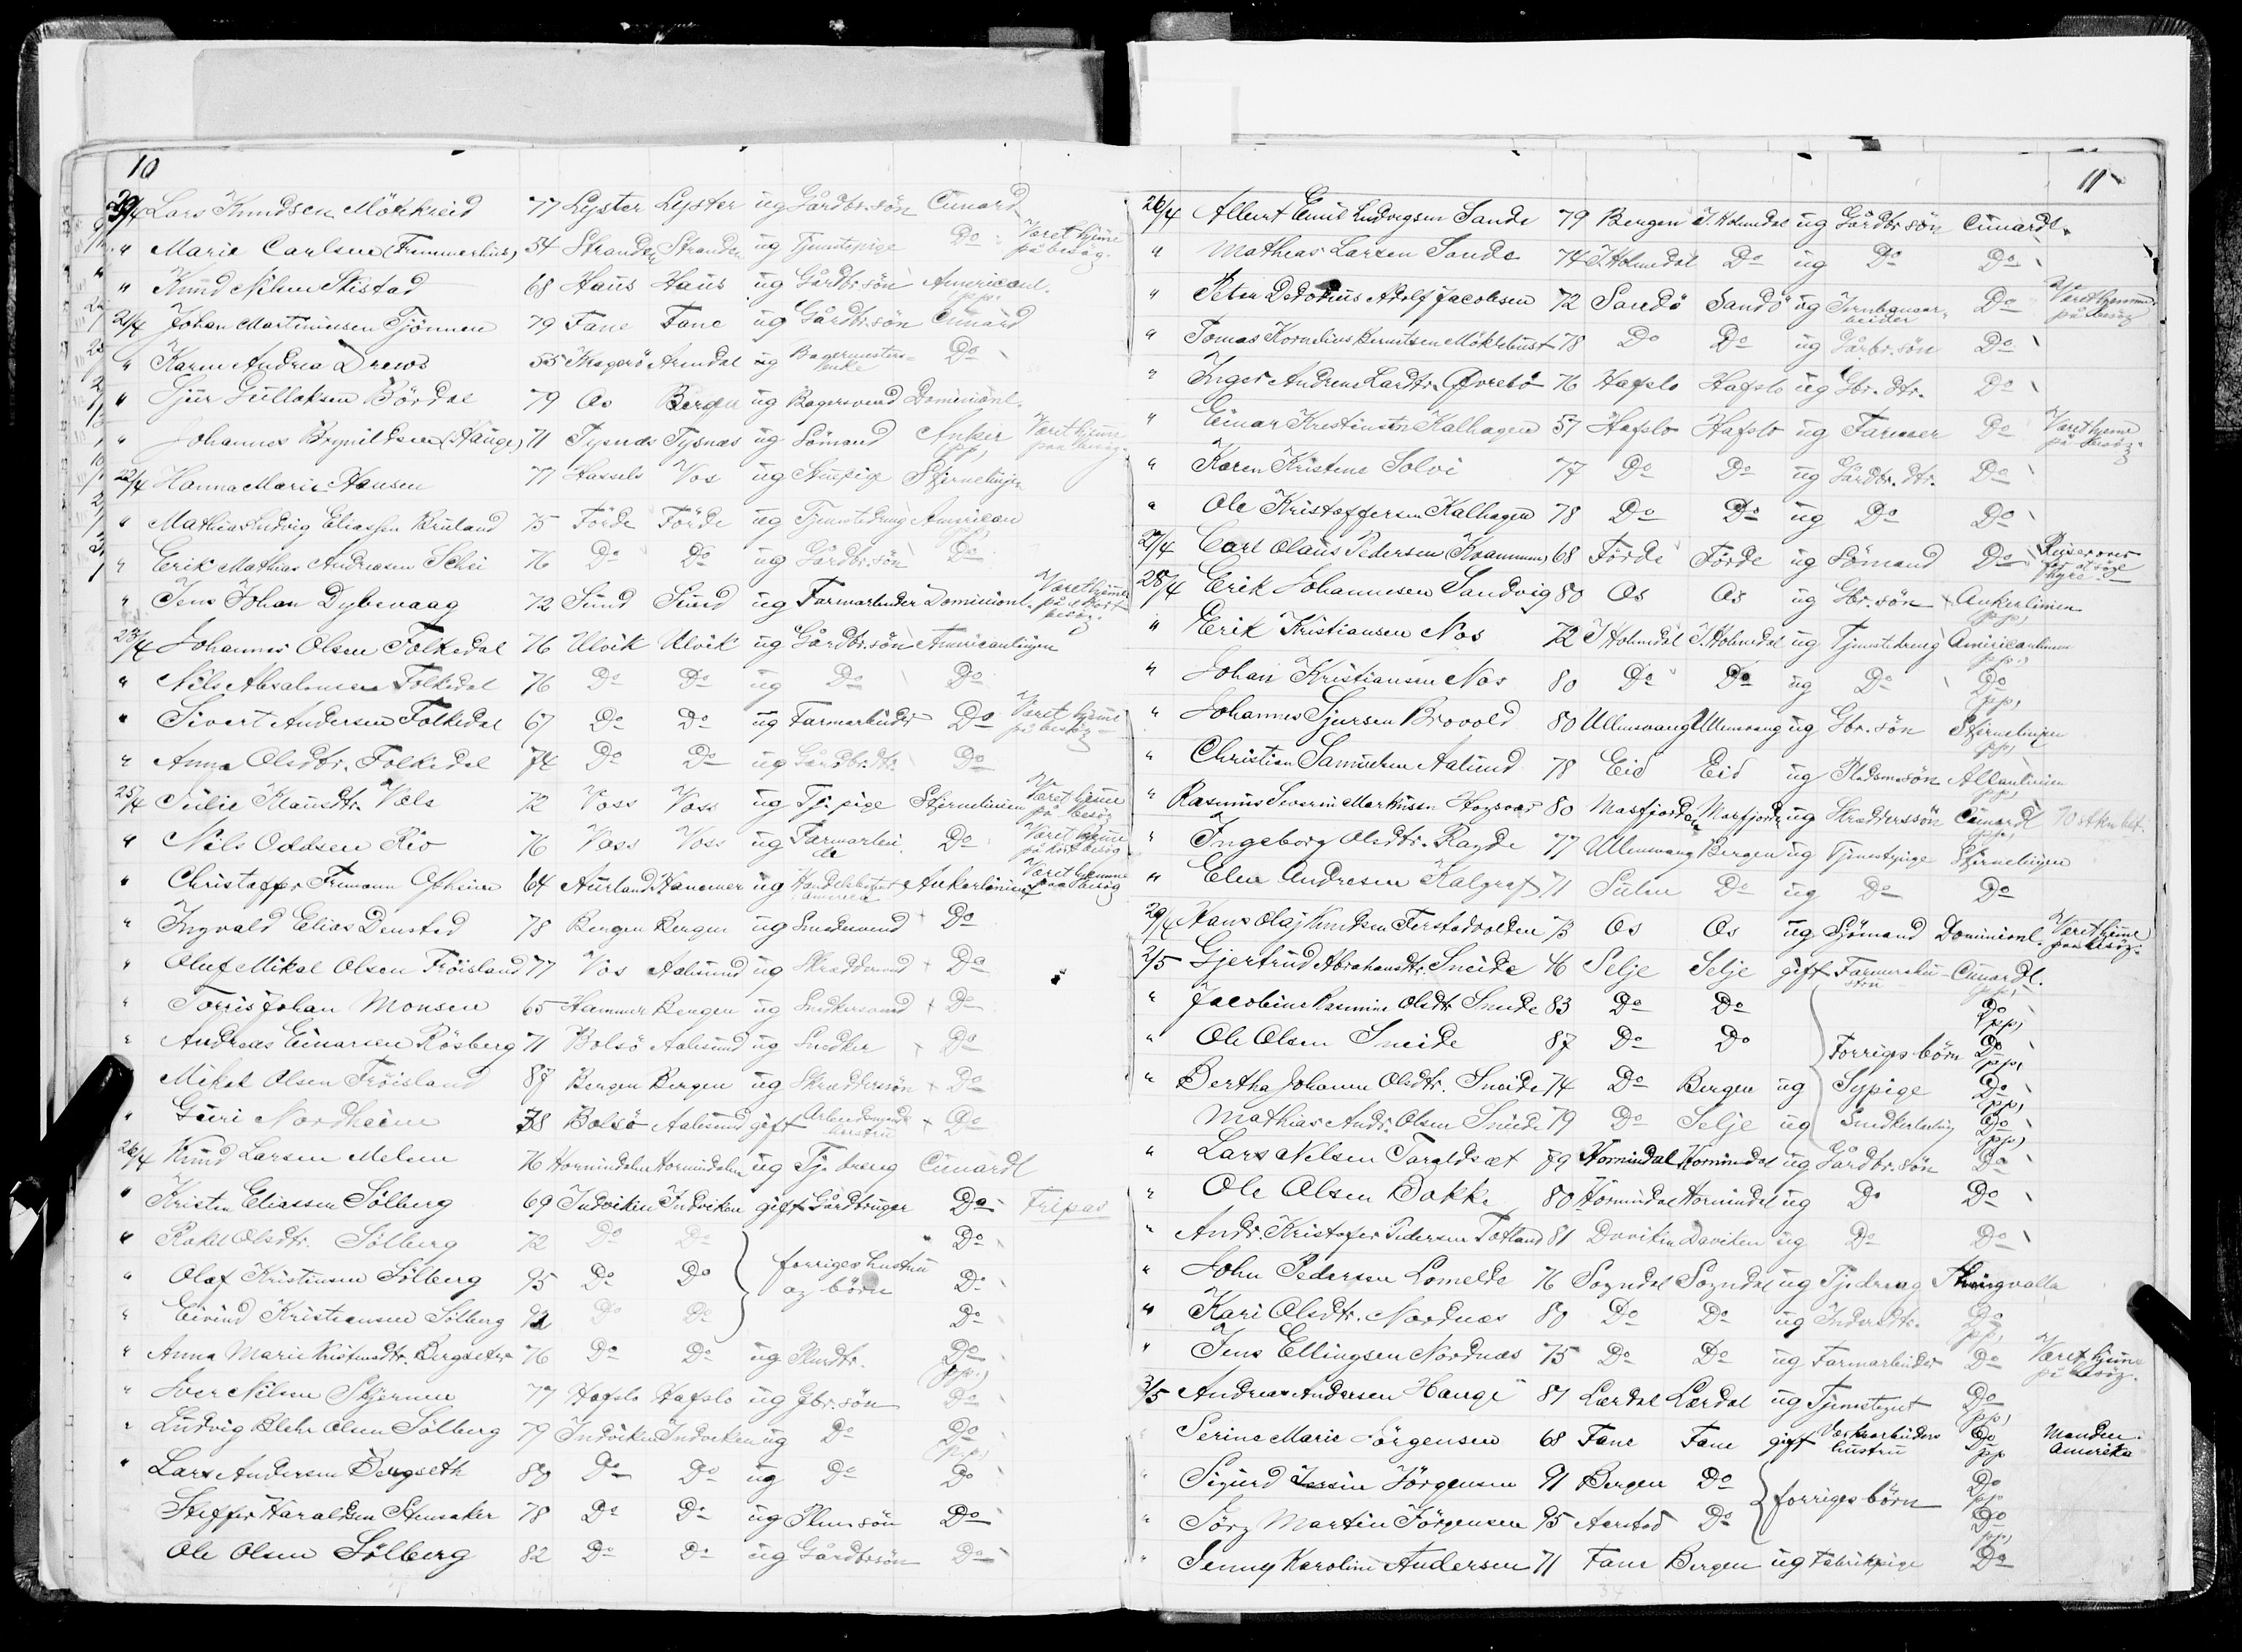 10
20/4 Lars Knudsen Mörkreid 77 Lyster Lyster ug Gårdbr.sön Cunard
" Marie Carlsen 54 Stranden Stranden ug Tjenestepige Do Været hjemme på besög.
" Knud Nilsen 68 Haus Haus ug Gårdbr.sön Americanl. pp.
21/4 Johan Martinusen 79 Fane Fane ug Gårdbr.sön Cunard
" Karen Andrea Drews 55 Kragerö Arendal ug Bagermesters enke Do
" Sjur Gulloksen Bördal 79 Os Bergen ug Bagersvend Dominionl.
" Johannes Brynildsen (Hauge) 71 Tysnæs Tysnæs ug Sömand Anker pp, Været hjemme paa besög.
22/4 Hanna Marie Hansen 77 Vos ug Stuepige Stjernelinjen
" Mathias Ludvig Eliassen Bruland 75 Förde Förde ug Tjenestedreng American
" Erik Mathias Andreasen Schei 76 Do Do ug Gårdbr.sön Do
" Jens Johan Dybevaag 72 Sund Sund ug Farmarbeider Dominionl. Været hjemme på et kort besög.
23/4 Johannes Olsen Folkedal 76 Ulvik Ulvik ug Gårdbr.sön Americanlinjen
" Nils Absalonsen Folkedal 76 Do Do ug Do Do
" Sivert Andersen Folkedal 67 Do Do ug Farmarbeider Do Været hjemme på besög
" Anna Olsdtr. Folkedal 74 Do Do ug Gårdbr.dtr. Do
25/4 Julie Knudsdtr. Væls 72 Voss Voss ug Tj. pige Stjernelinien Været hjemme på besög
" Nils Oddsen Rio 76 Voss Voss ug Farmarbei de Do Været hjemme på kort besög
" Christoffer Fremann Ofheim 64 Aurland ug America Ankerlinien Været hjemme paa besög
" Ingvald Elias Denstad 78 Bergen Bergen ug Smedsvend Do
" Oluf Mikal Olsen Fröisland 77 Vos Aalesund ug Skræddersvend Do
" Torris Johan Monsen 65 Hammer Bergen ug Snedkersvend Do
" Andreas Einarsen Rösberg 71 Bolsö Aalesund ug Snedker Do
Mikal Olsen Fröisland 87 Bergen Bergen ug Skræddersön Do
" Guri Nordheim 38 Bolsö Aalesund gift Arbeidsmands hustru Do
26/4 Knud Larsen Melsen 76 Hornindalen Hornindalen ug Tj. dreng Cunardl
" Kristen Eliassen Sölberg 69 Indviken Indviken gift Gårdbruger Do Fripas
" Rakel Olsdtr. Sölberg 72 Do Do Do
" Olaf Kristensen Sölberg 95 Do Do forriges hustru og börn Do
" Eivind Kristiansen Sölberg 92 Do Do Do
" Anna Marie Kristensdtr. Bergseter 76 Do Do ug Do pp.
" Iver Nilsen Skjerven 77 Hafslo Hafslo ug Gbr.sön Do
" Ludvig Blehr Olsen Sölberg 79 Indviken Indviken ug Do Do pp.
" Lars Andersen Bergseth 80 Do Do ug Do Do
Steffer Haraldsen Stensaker 78 Do Do ug Do
Ole Olsen Sölberg 82 Do Do ug Gårdbr.sön Do
11
26/4 Albert Emil Ludvigsen Sande 79 Bergen I. Holmedal ug Gårdbr.sön Cunardl.
" Mathias Larsen Sande 74 I. Holmedal Do ug Do Do
" Peter Adolf Jacobsen 72 Sandö Sandö ug Jernbanear- beider Do Været hjemme på besög
" Tomas Kornelius Berntsen Möklebust 78 Do Do ug Gårbr.sön Do
" Inger Andrine Larsdtr. Övrebö 76 Hafslo Hafslo ug Gbr. dtr. Do
" Einar Kristensen Kalhagen 57 Hafslo Hafslo ug Farmer Do Været hjemme på besög
" Karen Kristense Solvi 77 Do Do ug Gårdbr. dtr. Do
" Ole Kristoffersen Kalhagen 78 Do Do ug Do Do
27/4 Carl Olaus Pedersen (Kvammen) 68 Förde Förde ug Sömand Do Reiser over for at söge hyre.
28/4 Erik Johannesen Sandvig 80 Os Os ug Gbr.sön Ankerlinien pp,
" Erik Kristiansen Nos 72 I Holmedal I. Holmedal ug Tjenestedreng Americanlinien pp,
" Johan Kristiansen Nos 80 Do Do ug Do Do pp,
" Johannes Sjursen Brovold 80 Ullensvang Ullensvang ug Gbr.sön Stjernelinjen pp,
" Christian Samuelsen Aalund 78 Eid Eid ug Pladsmsön Allanlinien pp,
" Rasmus Severin Markusen 80 Masfjorden Masfjorden ug Skrædderssön Cunardl pp,
" Ingeborg Olsdtr. Ragde 77 Ullensvang Bergen ug Tjenestepige Stjernelinjen
" Elen Andresen Kalgraf 71 Sulen Do ug Do Do
29/4 Hans Olaj Knudsen 73 Os Os ug Sjömand Dominionl. Været hjemme paa besög.
2/5 Gjertrud Abrahamsdtr. Sneide 46 Selje Selje gift Farmershu- stru Cunardl. pp,
" Jacobine Rasmine Olsdtr Sneide 83 Do Do Do pp,
" Ole Olsen Sneide 87 Do Do Forriges börn Do pp,
" Bertha Johanne Olsdtr. Sneide 74 Do Bergen ug Sypige Do pp,
Mathias Andr. Olsen Sneide 79 Do Selje ug Snedkerlærling Do pp,
" Lars Nilsen Taraldsæt 79 Hornindal Hornindal ug Gårdbr.sön Do
" Ole Olsen Bakke 80 Hornindal Hornindal ug Do Do
" Andr. Kristofer Pedersen Totland 81 Daviken Daviken ug Do Do
" John Pedersen Lomelde 76 Sogndal Sogndal ug Tjedreng Thingvalla
" Kari Olsdtr. Nordnæs 80 Do Do ug Inderstdtr. Do pp,
" Jens Ellingsen Nordnæs 75 Do Do ug Farmarbeider Do Været hjemme på besög.
3/5 Andreas Andersen Hauge 81 Lærdal Lærdal ug Tjenestegut Do pp,
Serine Marie Jörgensen 68 Fane Fane gift Værksarbeiders hustru Do pp Manden i Amerika
" Sigurd Jörgensen 91 Bergen Do Do pp.
" Jörg Martin Jörgensen 95 Aarstad Do forriges börn Do pp,
" Jenny Karoline Andersen 71 Fane Bergen ug Fabrikpige Do